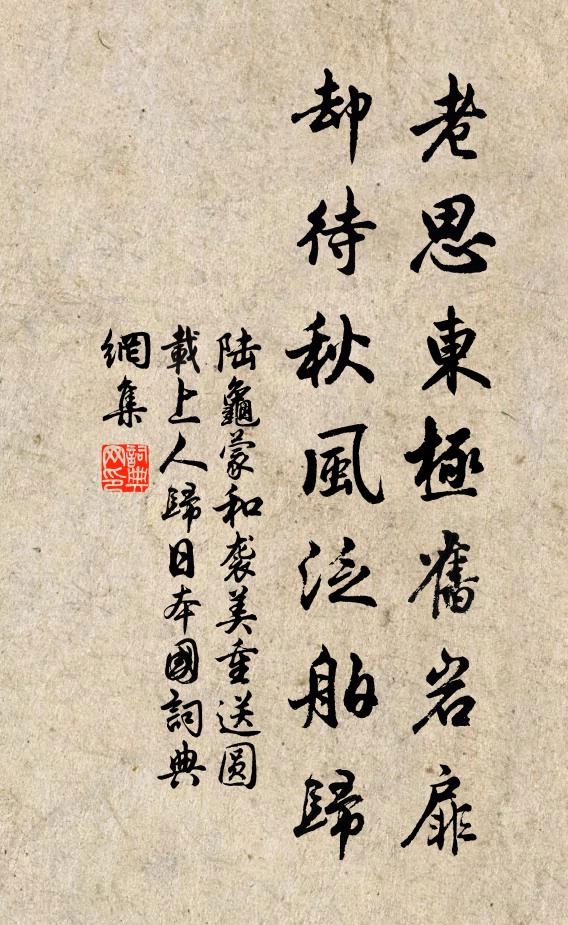 老思東極舊岩扉
却待秋風泛舶歸
陆龜蒙和袭美重送圆
載上人歸日本國詞典
網集
詞典
网印